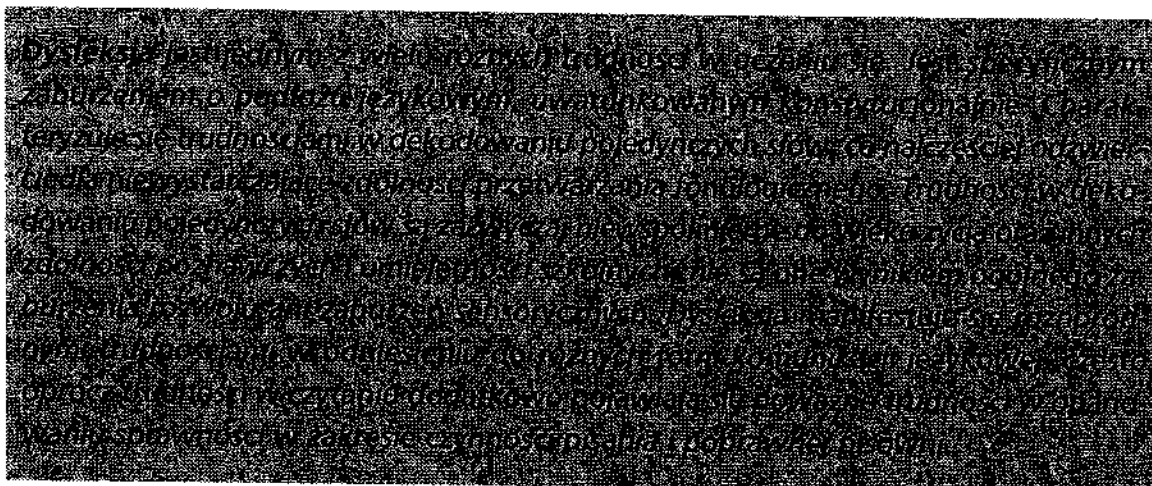 Dysleksja jest jednym z wielu różnych trudności w uczeniu się. Jest specyficznym
zaburzeniem o podłożu językowym, uwarunkowanym konstytucjonalnie. Charak-
teryzuje się trudnościami w dekodowaniu pojedynczych słów, co najczęściej odzwier-
ciedla niewystarczające zdolności przetwarzania fonologicznego. Trudności w deko-
dowaniu pojedynczych słów są zazwyczaj niewspółmierne do wieku życia oraz innych
zdolności poznawczych i umiejętności szkolnych; nie są one wynikiem ogólnego za-
burzenia rozwoju ani zaburzeń sensorycznych. Dysleksja manifestuje się
trudnościami w odniesieniu do różnych form komunikacji językowej, często
oprócz trudności w czytaniu dodatkowo pojawiają się poważne trudności w opano-
waniu sprawności w zakresie czynności pisania i poprawnej pisowni.